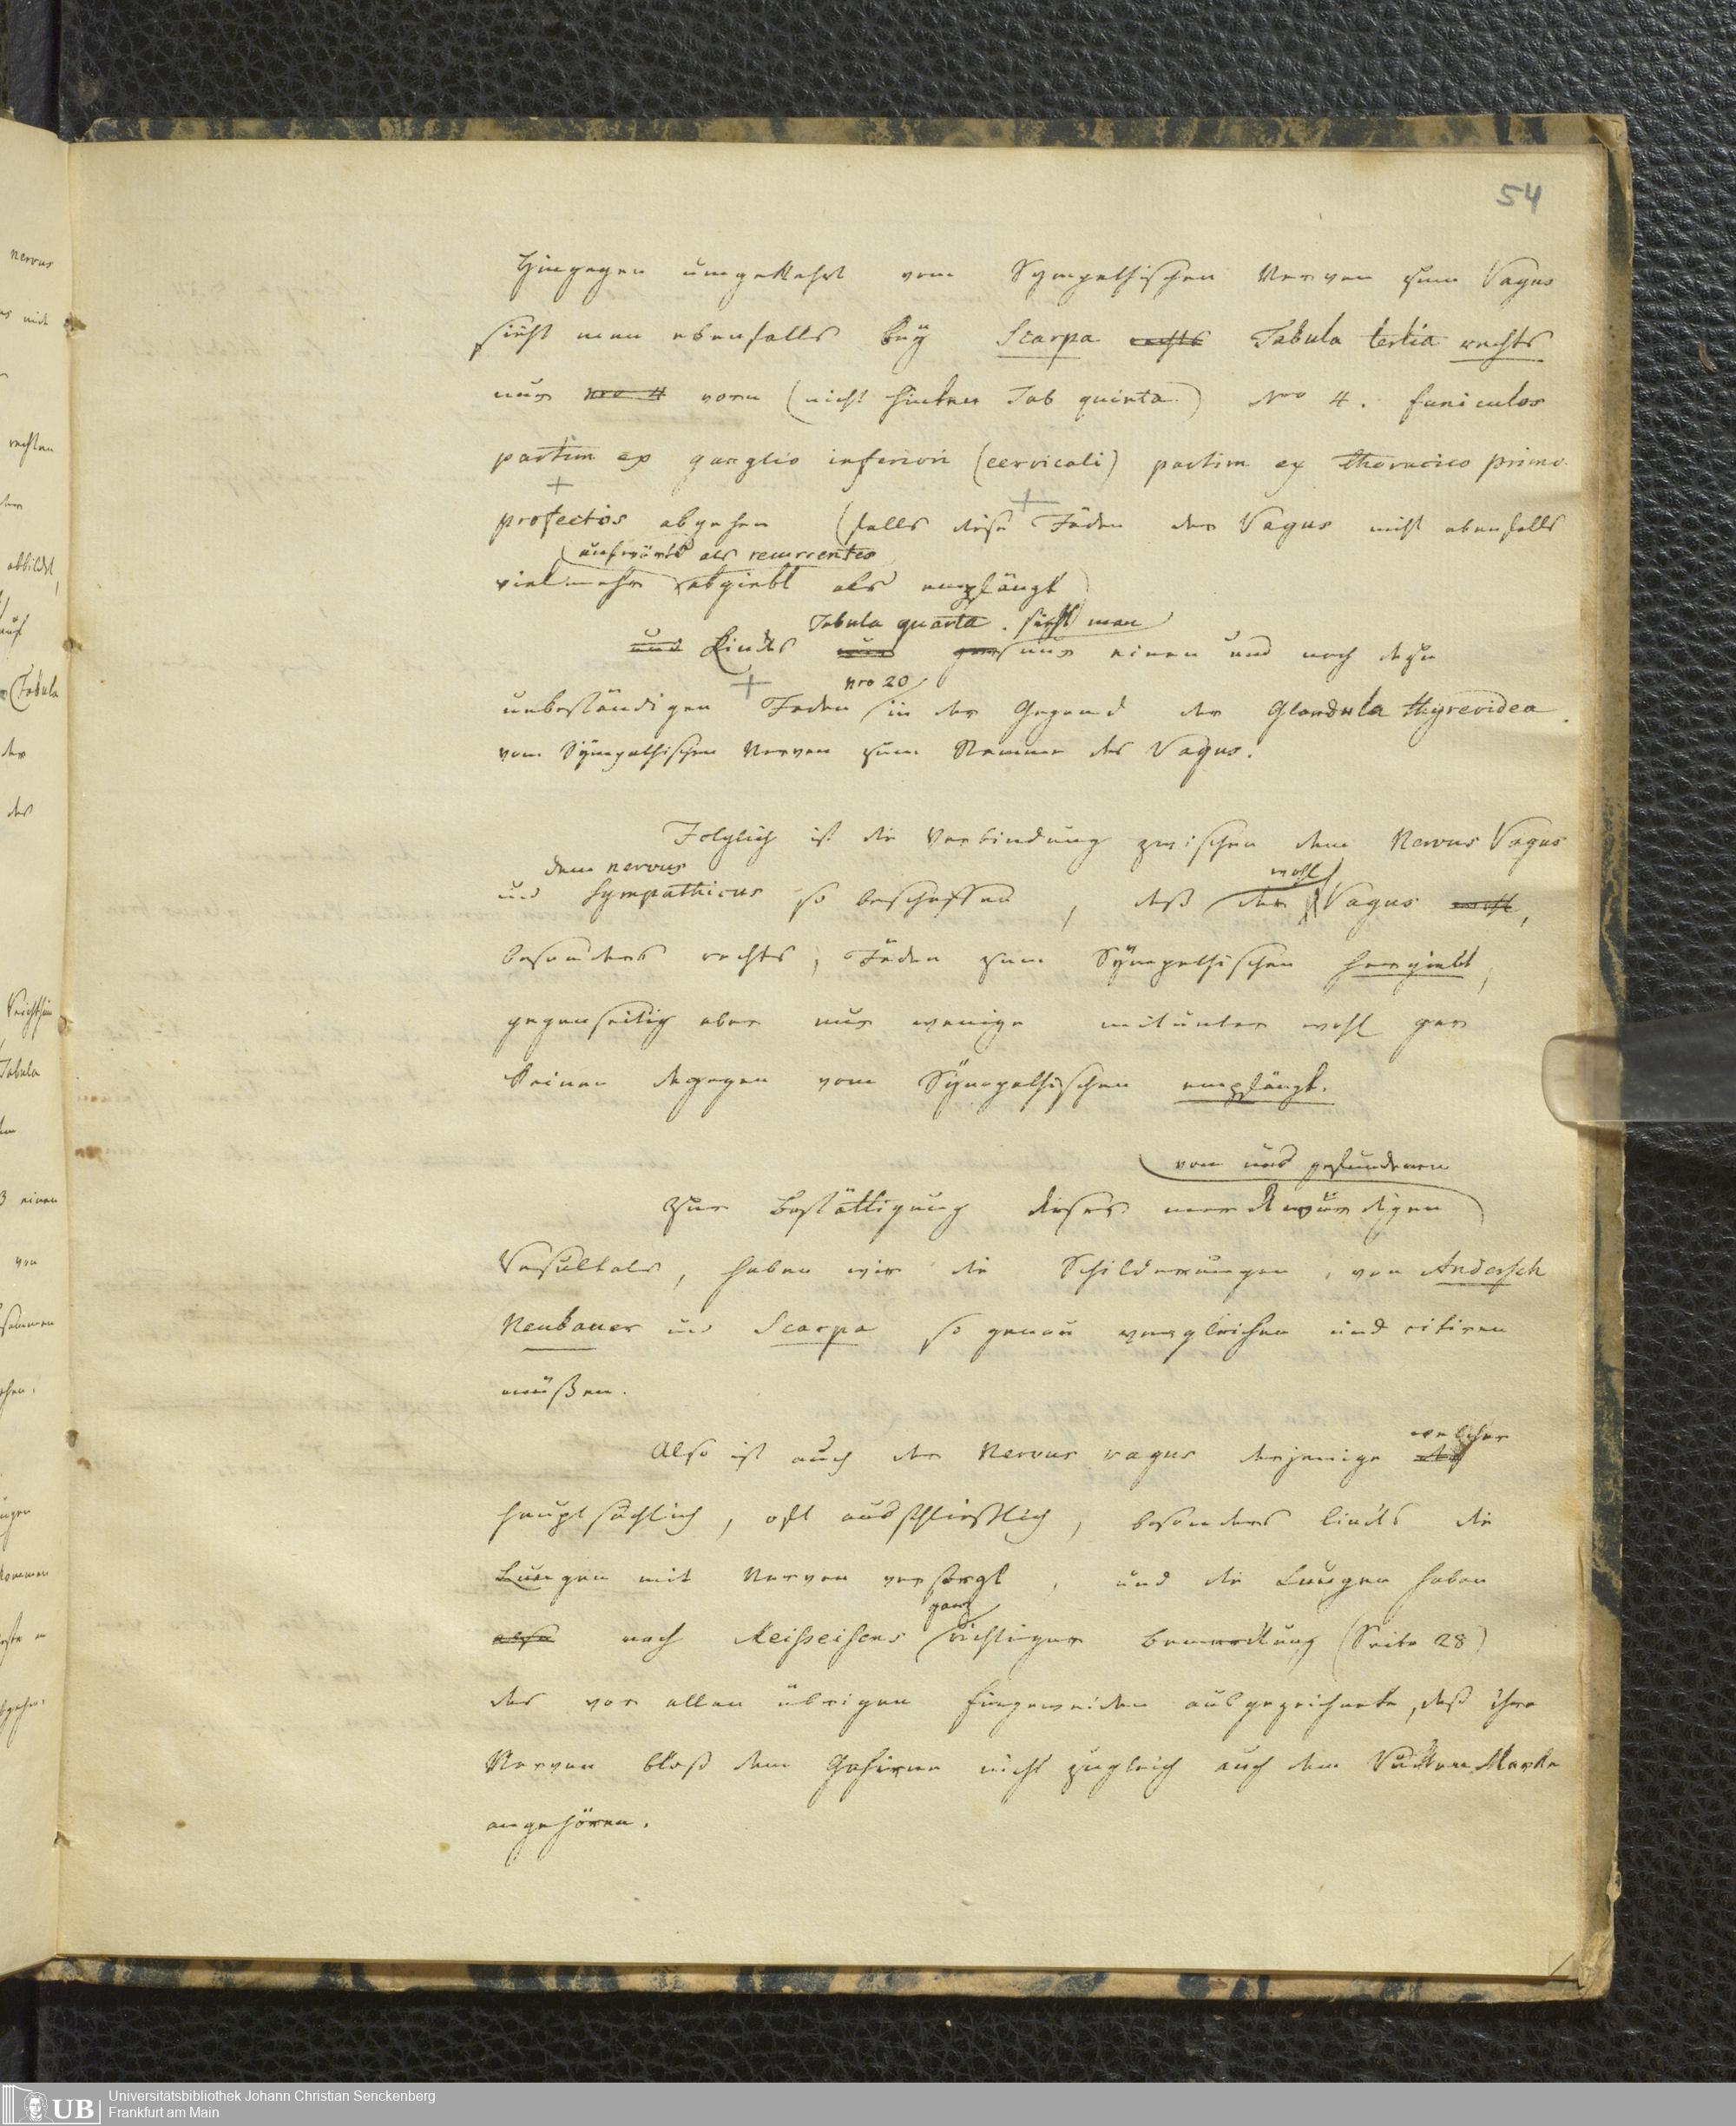 54
Hingegen umgekehrt vom Sympathischen Nerven zum Vagus
sieht man ebenfalls bey Scarpa rechts Tabula tertia rechts
nur nro 4 vorn (nicht hinten Tab quinta) Nro 4. funiculos
partim ex ganglio inferiori (cervicali) partim ex thoracico primo
profectos abgehen (falls diese Fäden der Vagus nicht ebenfalls
aufwärts als recurrentes
vielmehr abgiebt als empfängt)
Tabula quarta. sieht man
und Links nur nur einen und noch dazu
nro 20
unbeständigen Faden in der Gegend der Glandula thyreoidea
vom Sympathischen Nerven zum Stamme des Vagus.
Folglich ist die Verbindung zwischen dem Nervus Vagus
dem nervus wohl
und Sympathicus so beschaffen, daß der Vagus wohl,
besonders rechts, Fäden zum Sympathischen hergiebt,
gegenseitig aber nur wenige mitunter wohl gar
keinen dagegen vom Sympathischen empfängt.
von uns gefundenen
Zur Bestättigung dieses merkwürdigen
Resultats, haben wir die Schilderungen, von Andersch
Neubauer und Scarpa so genau vergleichen und citiren
müßen.
welcher
Also ist auch der Nervus vagus derjenige der
hauptsächlich, oft ausschließlich, besonders links die
Lungen mit Nerven versorgt, und die Lungen haben
ganz
also nach Reißeisens richtiger Bemerkung (Seite 28)
das vor allen übrigen Eingeweiden ausgezeichnete, daß ihre
Nerven bloß dem Gehirne nicht zugleich auch dem Rücken Marke
angehören.
UB Universitätsbibliothek Johann Christian Senckenberg
Frankfurt am Main